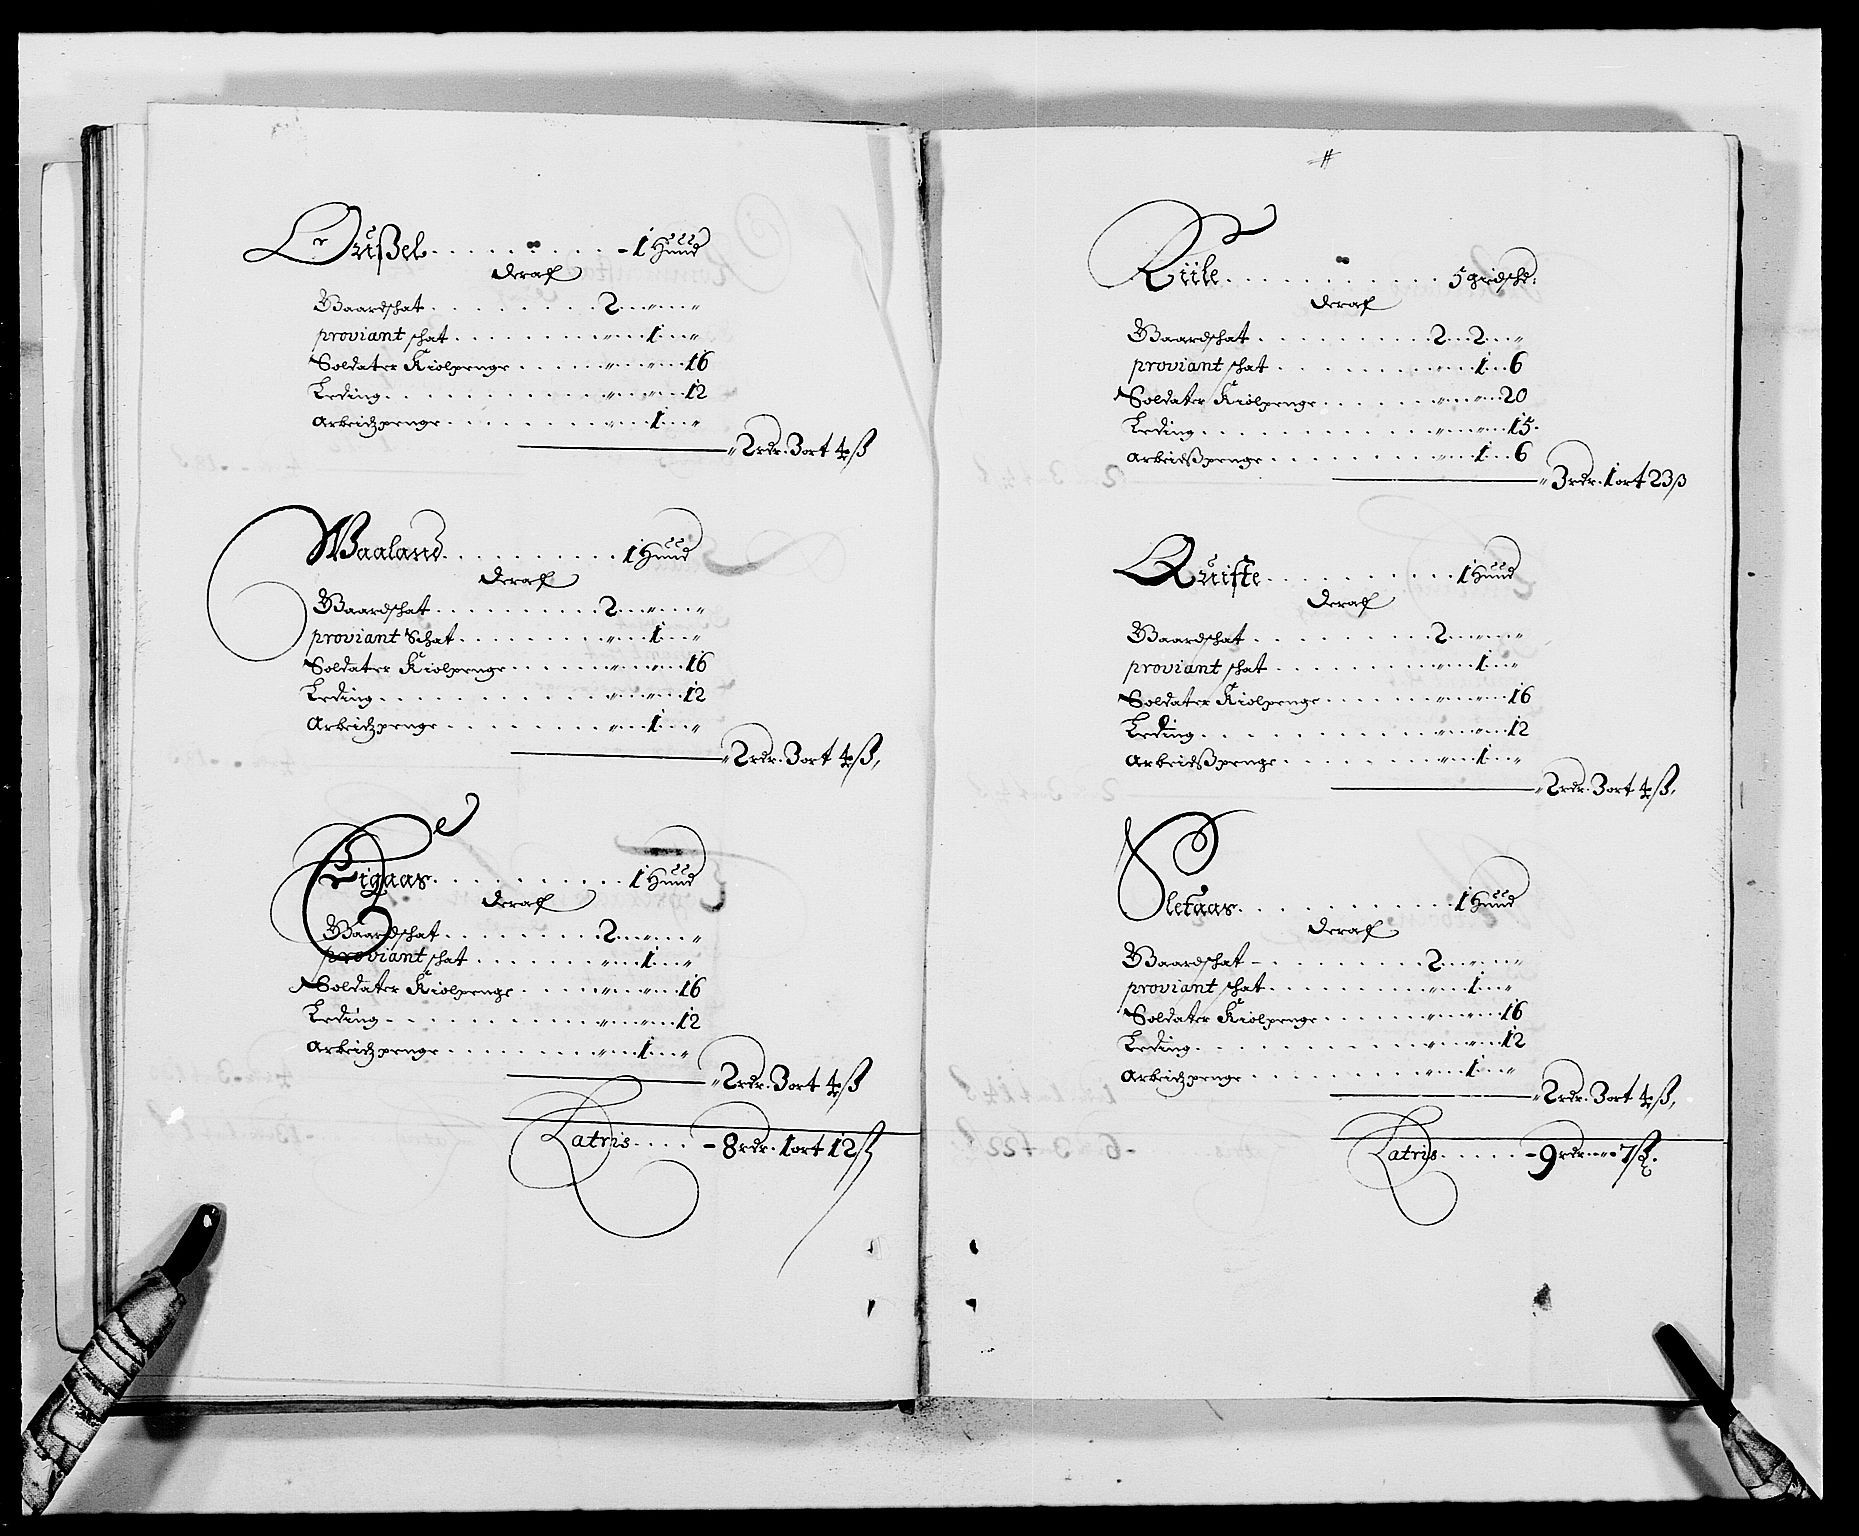 Qrußel . . . . . . . . . - 1 Huud
deraf
Waardschat . . . . . . . . 2 ...„...„
proviant schat . . . . . . . „ ... 1 ... „
Soldater Kiolpenge . . . . . „ ... „ ... 16
Leding . . . . . . . . . „ ... „ ... 12
Arbeidzpenge . . . . . . . „ ... 1 ... „
„ 2 rdr. 3 ort 4 ß
Waaland . . . . . . . . . 1 Hund
deraf
Waardschat . . . . . . . . 2 ...„...„
proviant Schat . . . . . . . „ ... 1 ... „
Soldater Kiolpenge . . . . . „ ... „ ... 16
Leding . . . . . . . . . „ ... „ ... 12
Arbeidzpenge . . . . . . . „ ... 1 ... „
„ 2 rdr. 3 ort 4 ß,
Eigaas . . . . . . . . . 1 Hund
deraf
Waardschat . . . . . . . . 2 ...„...„
proviant schat . . . . . . . „ ... 1 ... „
Soldater Kiolpenge . . . . . „ ... „ ... 16
Leding - . . . . . . . . „ ... „ ... 12
Arbeidzpenge . . . . . . . „ ... 1 ... „
„ 2 rdr. 3 ort 4 ß
Latris . . . . - 8 rdr. 1 ort 12 ß
Riile . . . . . . . . . 5 gridsche:
deraf
Waardschat . . . . . . . . 2 ... 2 ... „
proviant schat . . . . . . . „ ... 1 ... 6
Soldater Kiolpenge . . . . . „ ... „ ... 20
Leding . . . . . . . . . „ ... „ ... 15.
Arbeidßpenge . . . . . . . „ ... 1 ... 6
„ 3 rdr. 1 ort 23 ß
Quiste . . . . . . . . . 1 Hund
deraf
Waardschat . . . . . . . . 2 ...„...„
proviant schat . . . . . . . „ ... 1 ... „
Soldater Kiolpenge . . . . . „ ... „ ... 16
Leding . . . . . . . . . „ ... „ ... 12
Arbeidßpenge . . . . . . . „ ... 1 ... „
„ 2 rdr. 3 ort 4 ß,
Sletaas . . . . . . . . . 1 Hund
deraf
Waardschat - . . . . . . . 2 ...„...„
proviant schat . . . . . . . „ ... 1 ... „
Soldater Kiolpenge . . . . . „ ... „ ... 16
Leding . . . . . . . . . „ ... „ ... 12
Arbeidzpenge . . . . . . . „ ... 1 ... „
„ 2 rdr. 3 ort 4 ß,
Latris . . . . . - 9 rdr. „ 7 ß.